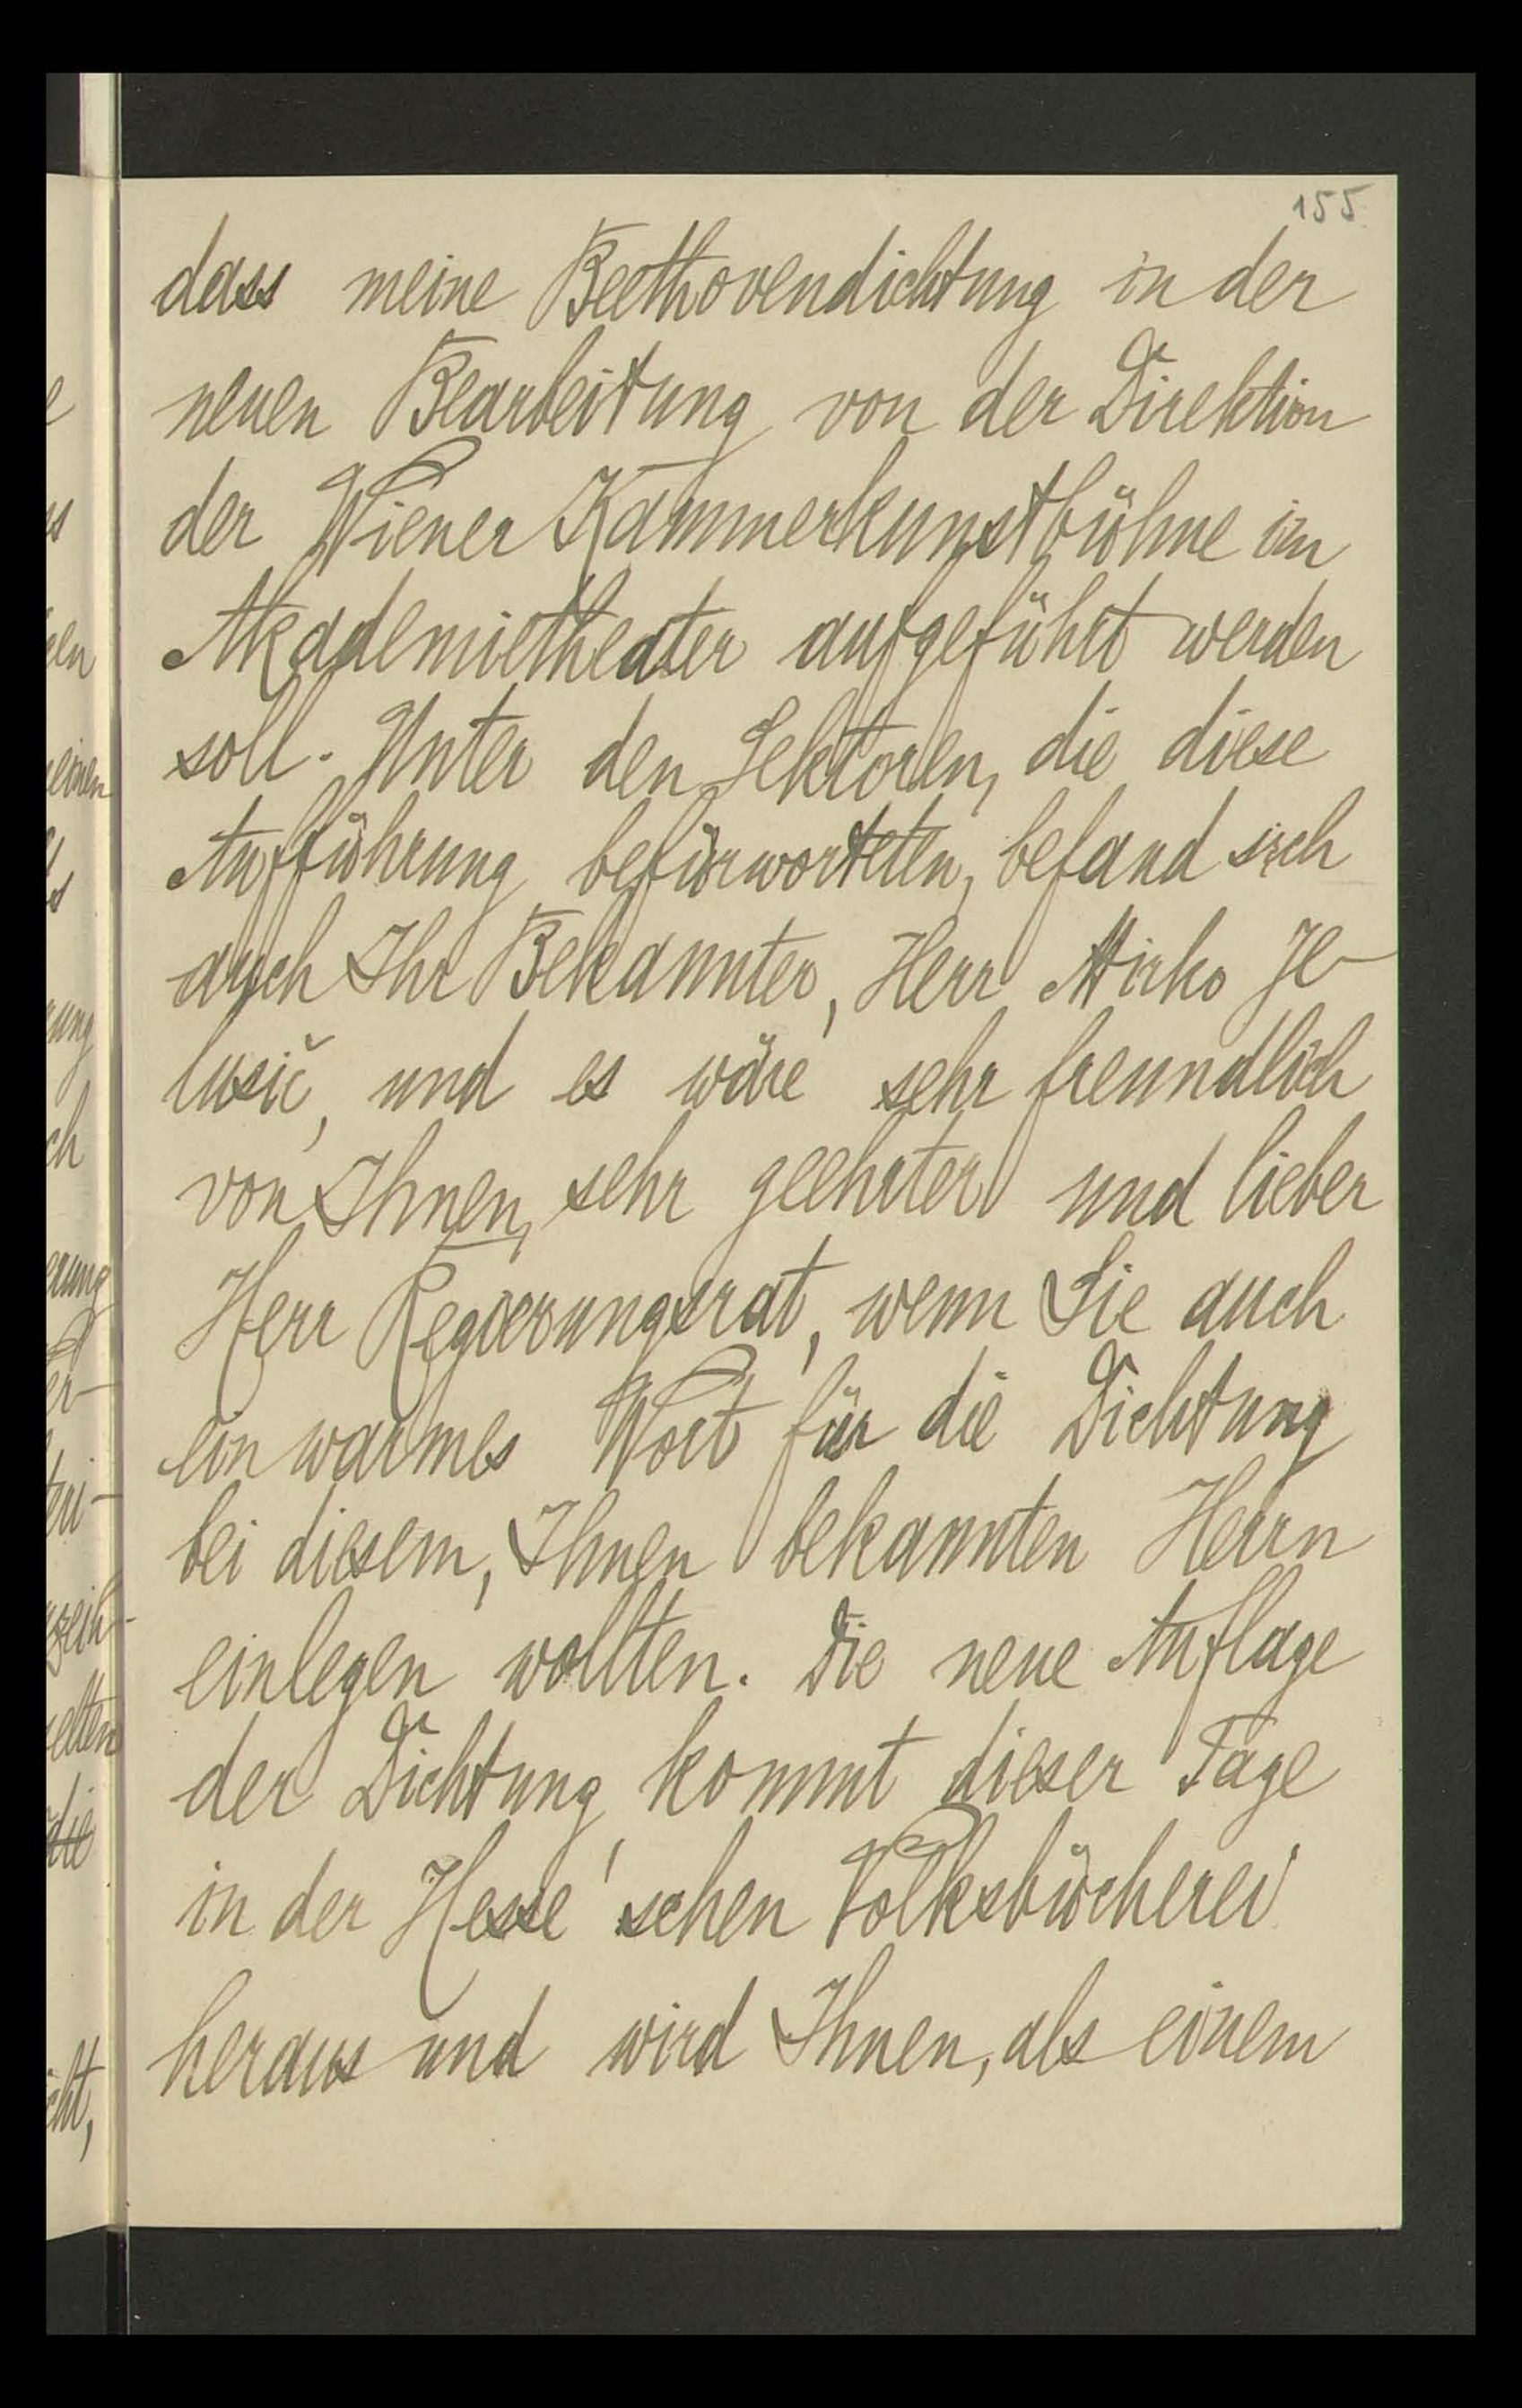 155
dass meine Beethovendichtung in der
neuen Bearbeitung von der Direktion
der Wiener Kammerkunstbühne im
Akademietheater aufgeführt werden
soll. Unter den Lektoren, die diese
Aufführung befürworteten, befand sich
auch Ihr Bekannter, Herr Mirko Je-
lusič, und es wäre sehr freundlich
von Ihnen, sehr geehrter und lieber
Herr Regierungsrat, wenn Sie auch
ein warmes Wort für die Dichtung
bei diesem, Ihnen bekannten Herrn
einlegen wollten. Die neue Auflage
der Dichtung kommt dieser Tage
in der Hesse'schen Volksbücherei
heraus und wird Ihnen, als einem